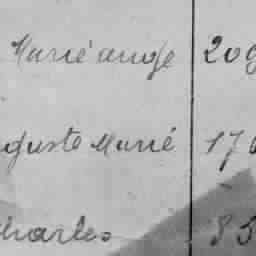 Marie ange 209
guste Marie 170
Charles 85